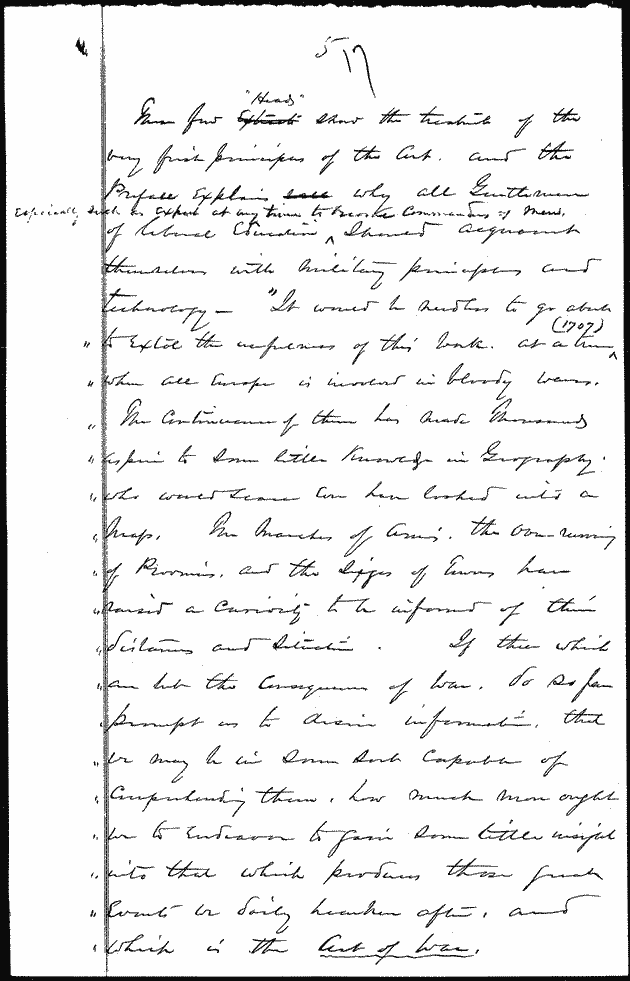 5 17
"Heads"
These few Extracts show the treatise of the
very first principles of the Art. and the
Preface Explains why all Gentlemen
Especially such as Expect at any time to become Commanders of Men,
of liberal Education ^ Should acquaint
themselves with Military principles and
technology — "It would be needless to go about
(1707)
" to Extol the usefulness of this Work. at a time ^
" when all Europe is involved in bloody wars.
" The Continuance of them has made Thousands
" aspire to some little Knowledge in Geography.
" who would scarce Ever have looked into a
" Map. The Marches of Armies. the over-running
" of Provinces. and the Sieges of Towns have
" raised a Curiosity to be informed of their
" distances and Situation. If these which
" are but the Consequences of War. do so far
" prompt us to desire information, that
" we may be in some sort Capable of
" Comprehending them, how much more ought
" we to Endeavor to gain some little insight
" into that which produces those great
" Events we daily hearken after, and
" which is the Art of War.